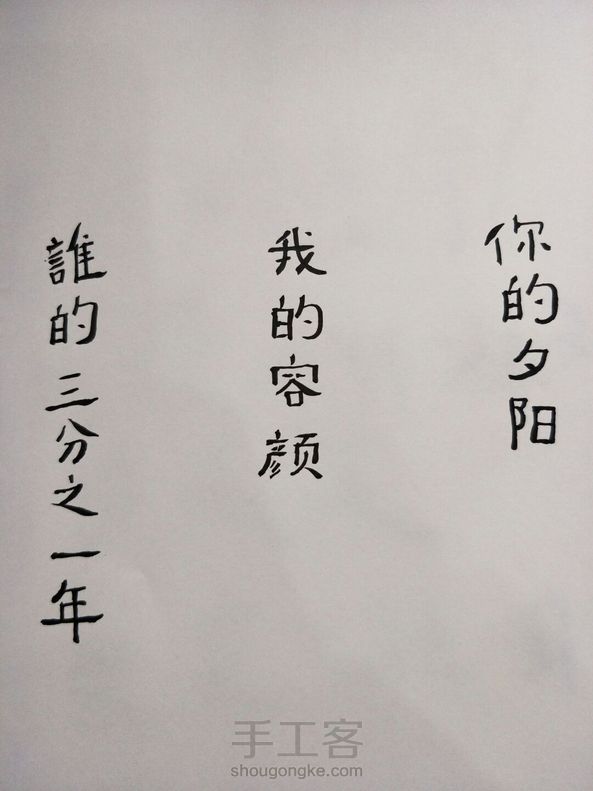 你的夕阳
我的容颜
誰的三分之一年
手工客
shougongke.com